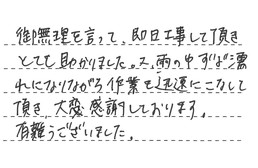 御無理を言って、即日工事して頂き
とても助かりました。又、雨の中ずぶ濡
れになりながら作業を迅速にこなして
頂き、大変感謝しております。
有難うございました。